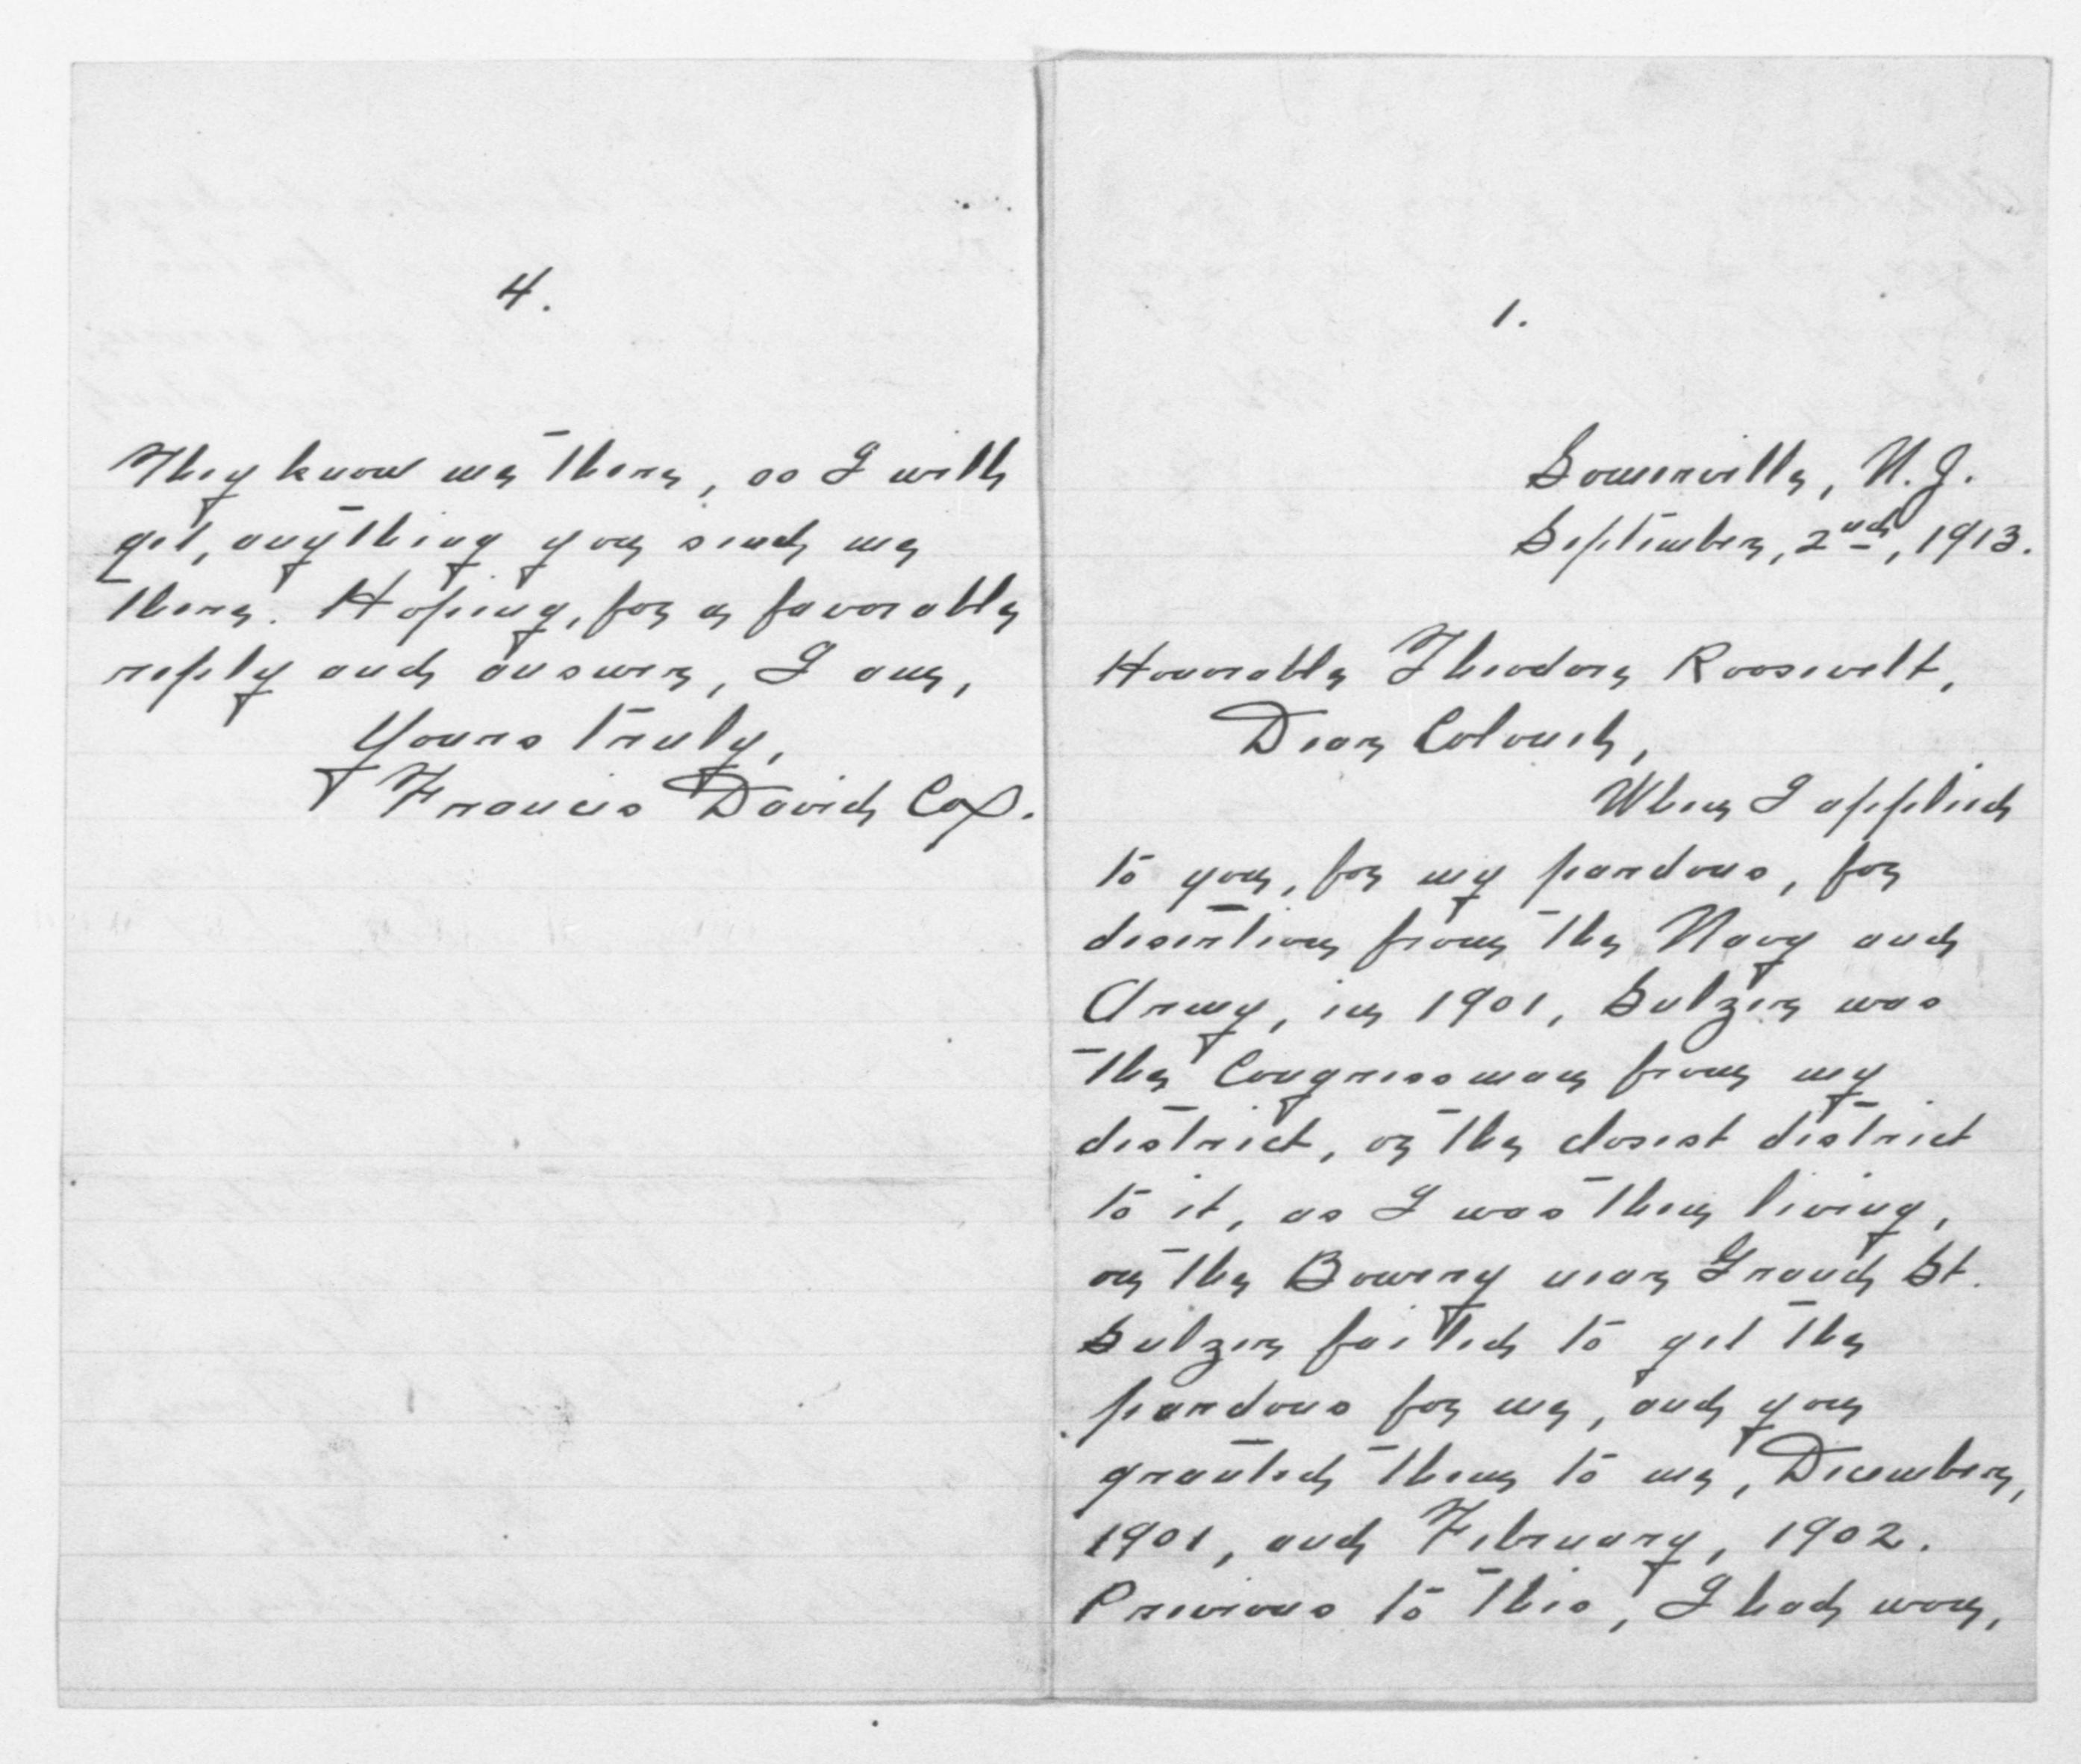 4.
They know me there, so I will
get, anything you send me
there. Hoping, for a favorable
reply and answer, I am,
Yours truly,
Francis David Cox.
1.
Somerville, N.J.
September, 2nd, 1913.
Honorable Theodore Roosevelt,
Dear Colonel,
When I applied
to you, for my pardons, for
desertion from the Navy and
Army, in 1901, Sulzer was
the Congressman from my
district, or the closest district
to it, as I was then living,
on the Bowery near Grand St.
Sulzer failed to get the
pardons for me, and you
granted them to me, December,
1901, and February, 1902.
Previous to this, I had won,